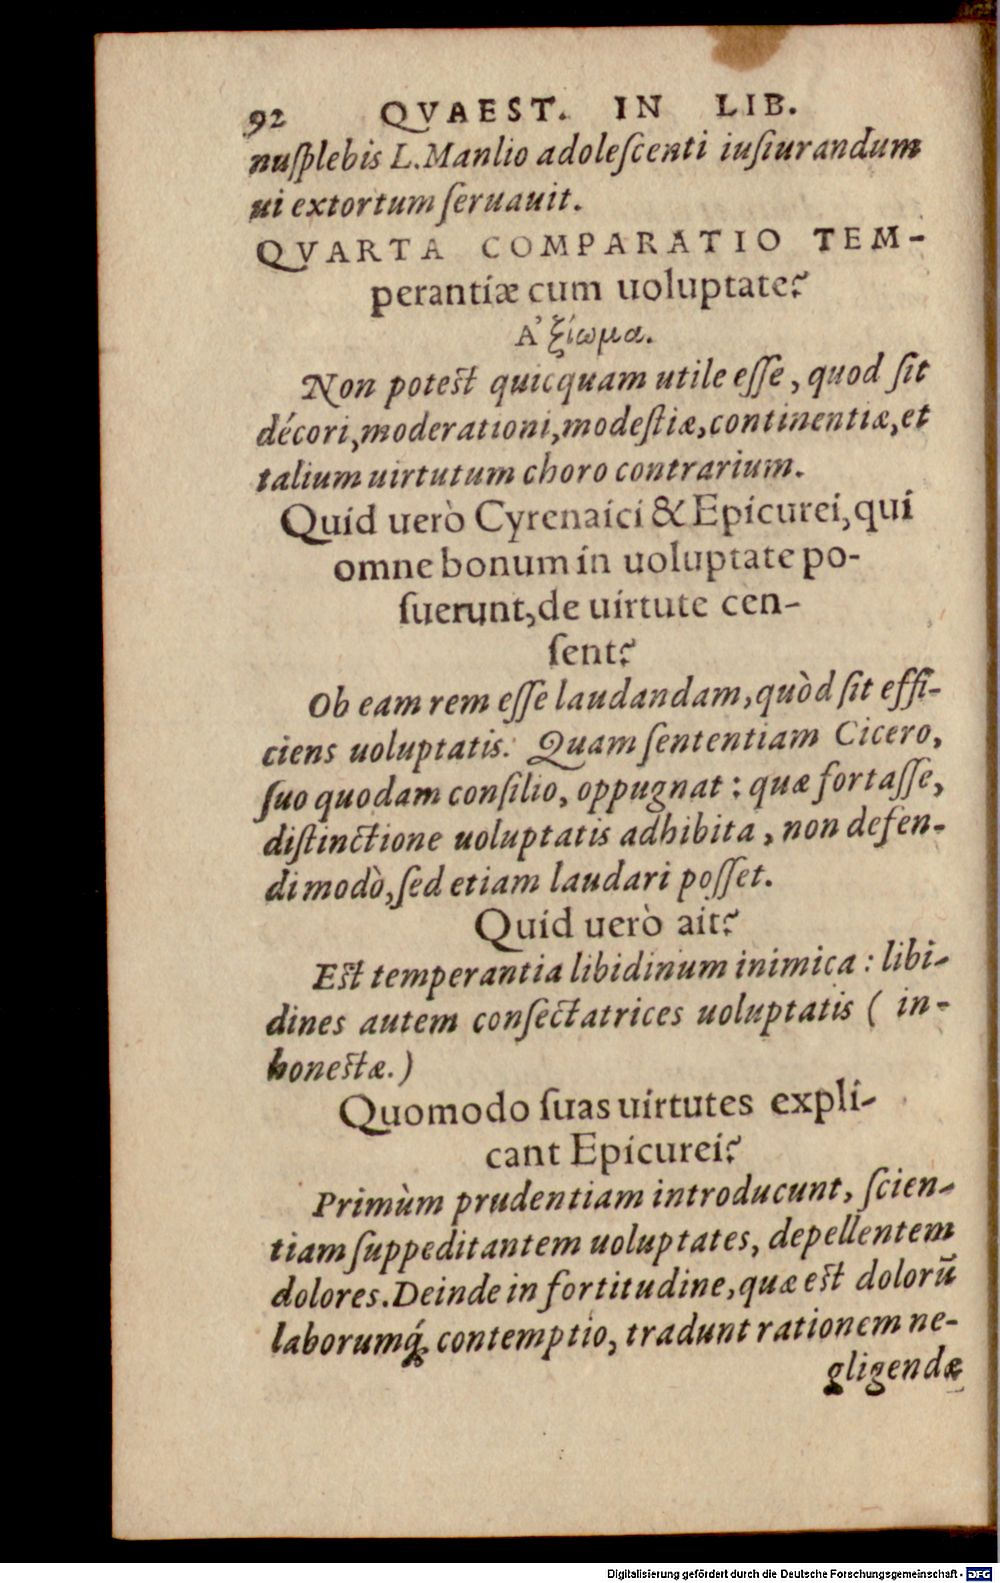 92 QVAEST. IN LIB.
nuſplebis L.Manlio adoleſcenti iuſiurandum
ui extortum ſeruauit.
QVARTA COMPARATIO TEM-
perantiæ cum uoluptate?
Ἀξίωμα.
Non poteſt quicquam utile eſſe, quod ſit
décori, moderationi, modeſtiæ, continentiæ, et
talium uirtutum choro contrarium.
Quid uerò Cyrenaici & Epicurei, qui
omne bonum in uoluptate po-
ſuerunt, de uirtute cen-
ſent?
Ob eam rem eſſe laudandam, quòd ſit effi-
ciens uoluptatis. Quam ſententiam Cicero,
ſuo quodam conſilio, oppugnat: quæ fortaſſe,
diſtinctione uoluptatis adhibita, non defen-
di modò, ſed etiam laudari poſſet.
Quid uerò ait?
Eſt temperantia libidinum inimica: libi-
dines autem conſectatrices uoluptatis (in-
honeſtæ.)
Quomodo ſuas uirtutes expli-
cant Epicurei?
Primùm prudentiam introducunt, ſcien-
tiam ſuppeditantem uoluptates, depellentem
dolores. Deinde in fortitudine, quæ eſt dolorū
laborumq́; contemptio, tradunt rationem ne-
gligendæ
Digitalisierung gefördert durch die Deutsche Forschungsgemeinschaft - DFG